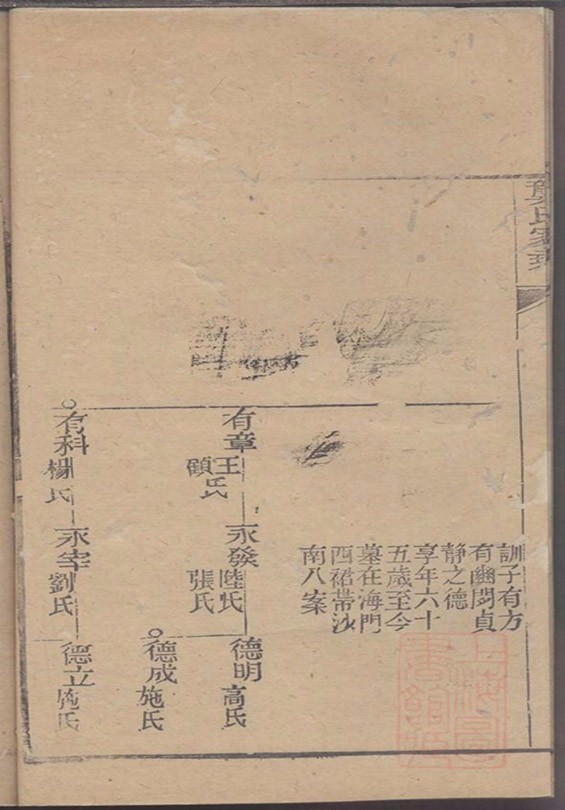 氏家乘
訓子有方
有幽閒貞
静之德
享年六十
五歲至今
墓在海門
四裙帯沙
南八案
有章
王氏
顧
永發
陸氏
張氏
德明
高氏
德成
施氏
有科
楊氏
永宰
劉氏
德立
施氏